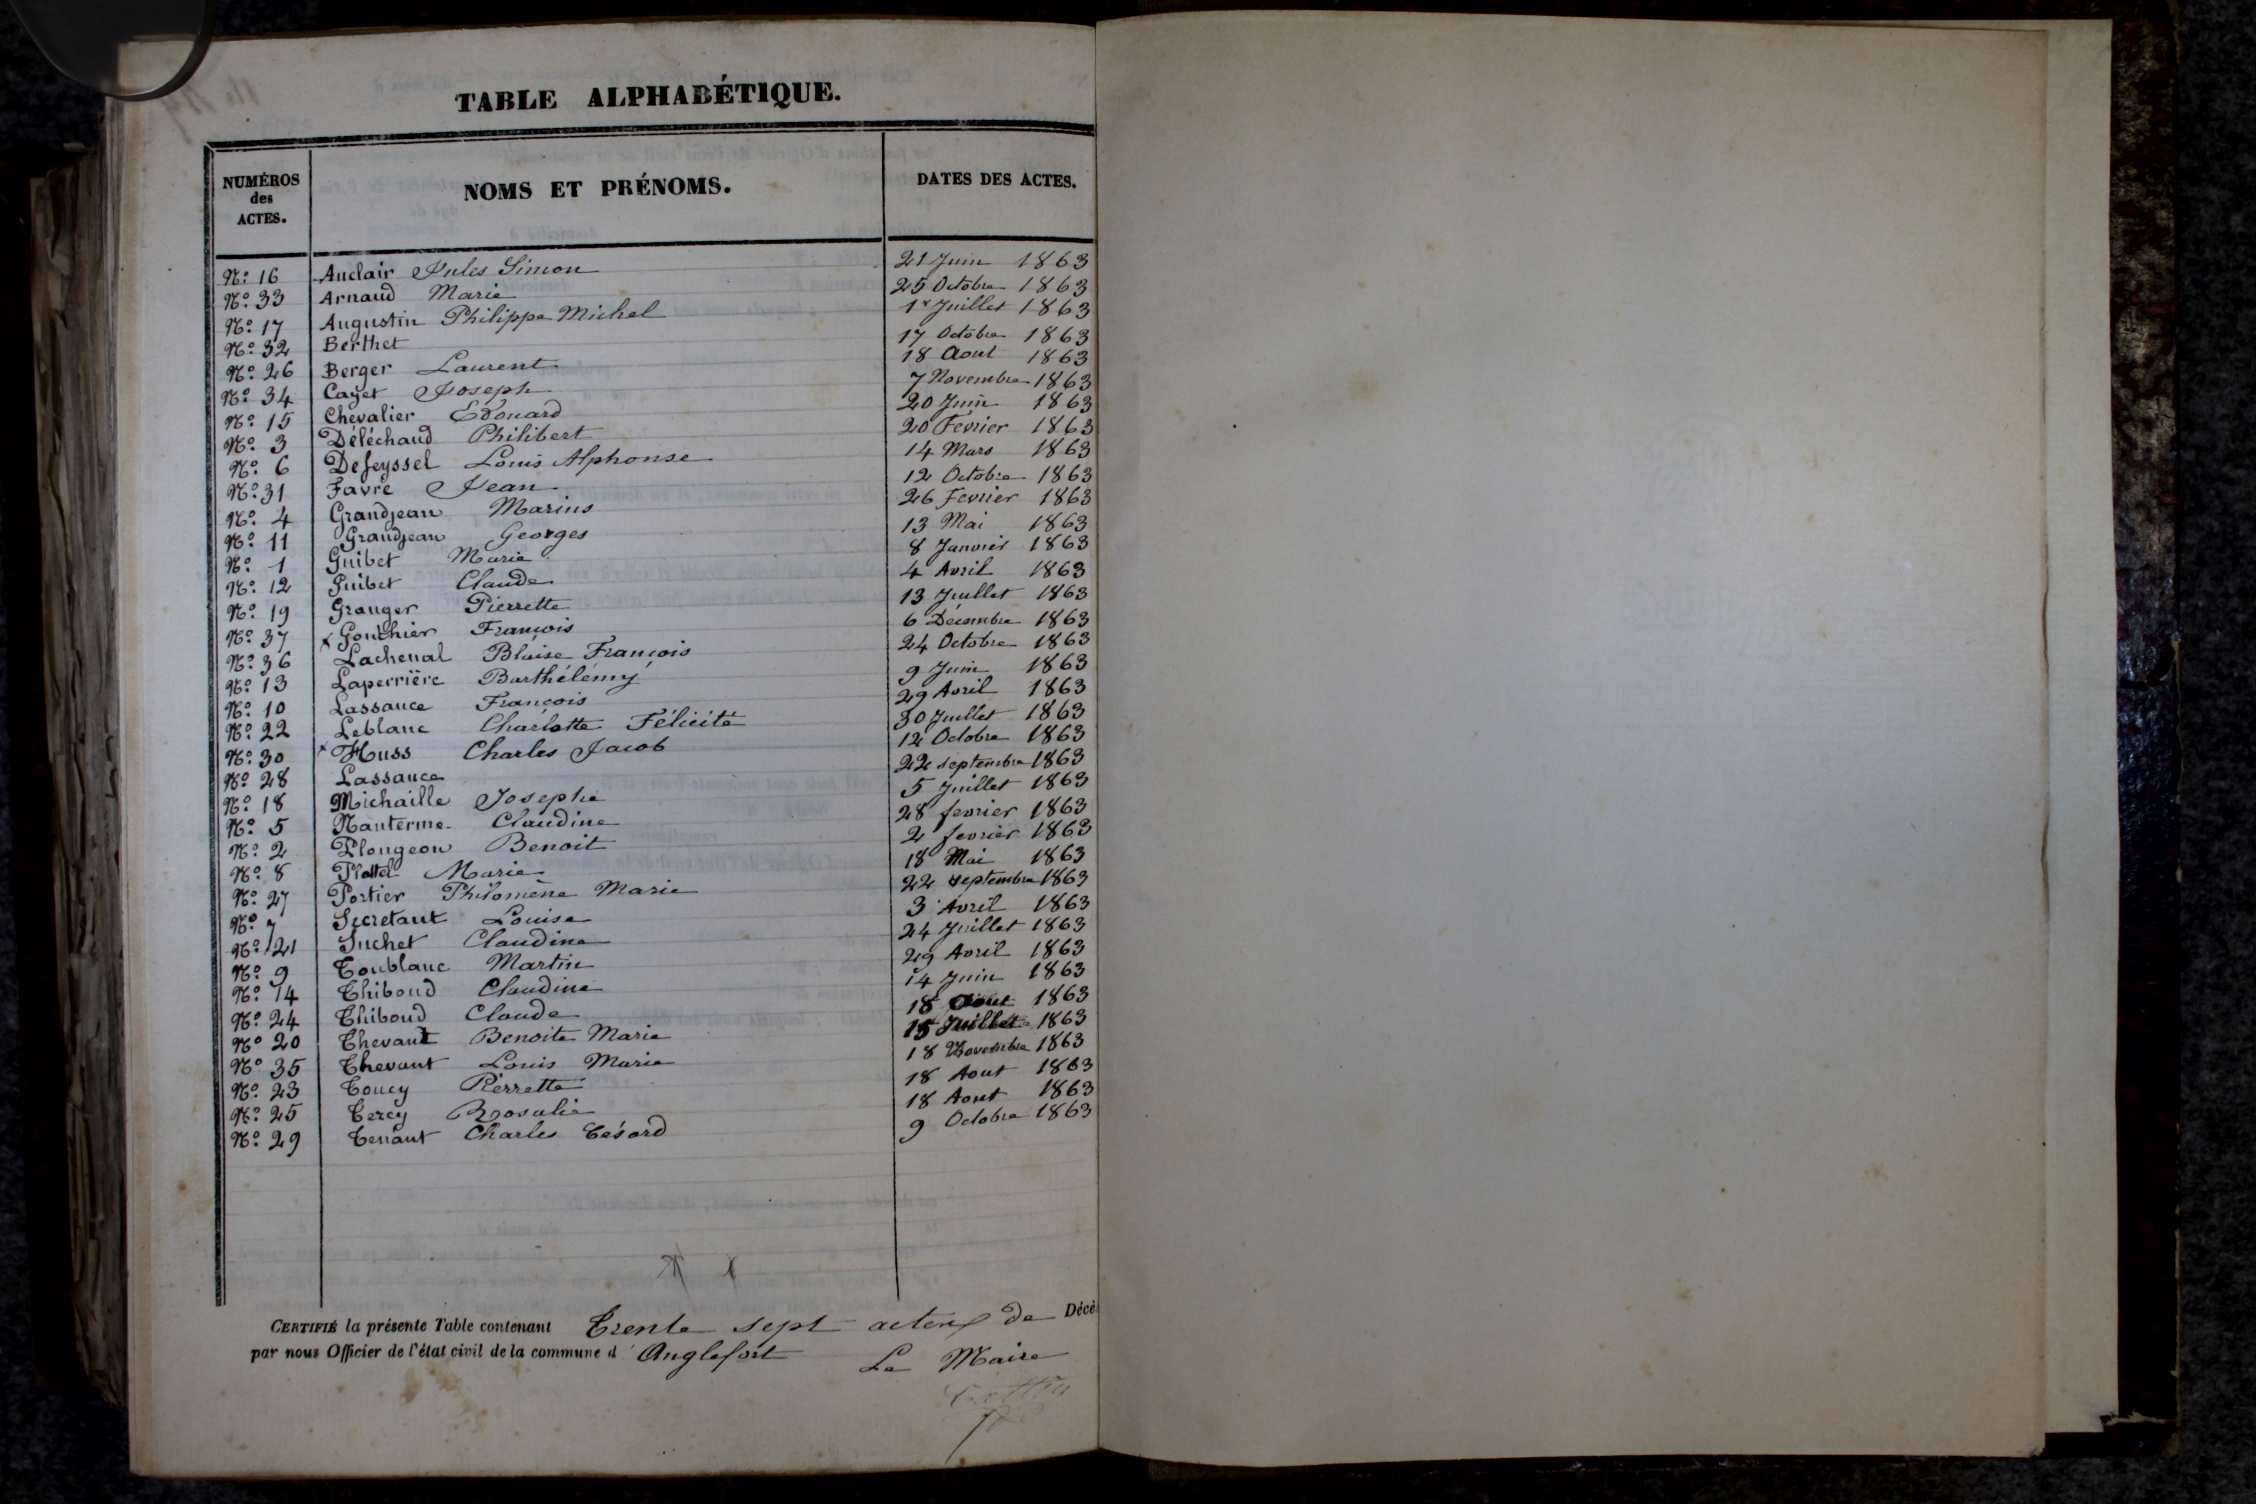 TABLE ALPHABÉTIQUE.
NUMÉROS des ACTES. NOMS ET PRÉNOMS. DATES DES ACTES.
N.º 16 Auclair Jules Simon 21 Juin 1863
N.º 33 Arnaud Marie 25 Octobre 1863
N.º 17 Augustin Philippe Michel 1er Juillet 1863
N.º 32 Berthet 17 Octobre 1863
N.º 26 Berger Laurent 18 Aout 1863
N.º 34 Cayet Joseph 7 Novembre 1863
N.º 15 Chevalier Edouard 20 Juin 1863
N.º 3 Déléchaud Philibert 20 Février 1863
N.º 6 Deseyssel Louis Alphonse 14 Mars 1863
N.º 31 Favre Jean 12 Octobre 1863
N.º 4 Grandjean Marius 26 Fevrier 1863
N.º 11 Grandjean Georges 13 Mai 1863
N.º 1 Guibet Marie 8 Janvier 1863
N.º 12 Guibet Claude 4 Avril 1863
N.º 19 Granger Pierrette 13 Juillet 1863
N.º 37 x Gonthier François 6 Décembre 1863
N.º 36 Lachenal Blaise François 24 Octobre 1863
N.º 13 Laperrière Barthélémy 9 Juin 1863
N.º 10 Lassauce François 29 Avril 1863
N.º 22 Leblanc Charlotte Félicité 30 Juillet 1863
N.º 30 x Huss Charles Jacob 12 Octobre 1863
N.º 28 Lassauce 22 septembre 1863
N.º 18 Michaille Josephe 5 Juillet 1863
N.º 5 Nanterme Claudine 28 fevrier 1863
N.º 2 Plongeon Benoit 2 fevrier 1863
N.º 8 Prattel Marie 18 Mai 1863
N.º 27 Portier Philomène Marie 22 septembre 1863
N.º 7 Secretant Louise 3 Avril 1863
N.º 21 Suchet Claudine 24 Juillet 1863
N.º 9 Toublanc Martin 29 Avril 1863
N.º 14 Thiboud Claudine 14 Juin 1863
N.º 24 Thiboud Claude 18 Aout 1863
N.º 20 Thevant Benoite Marie 15 Juillet 1863
N.º 35 Thevant Louis Marie 18 Novembre 1863
N.º 23 Toucy Pierrette 18 Aout 1863
N.º 25 Tercy Rosalie 18 Aout 1863
N.º 29 Tenant Charles Césard 9 Octobre 1863
CERTIFIÉ la présente Table contenant Trente sept actes de Décè
par nous Officier de l'état civil de la commune d'Anglefort Le Maire